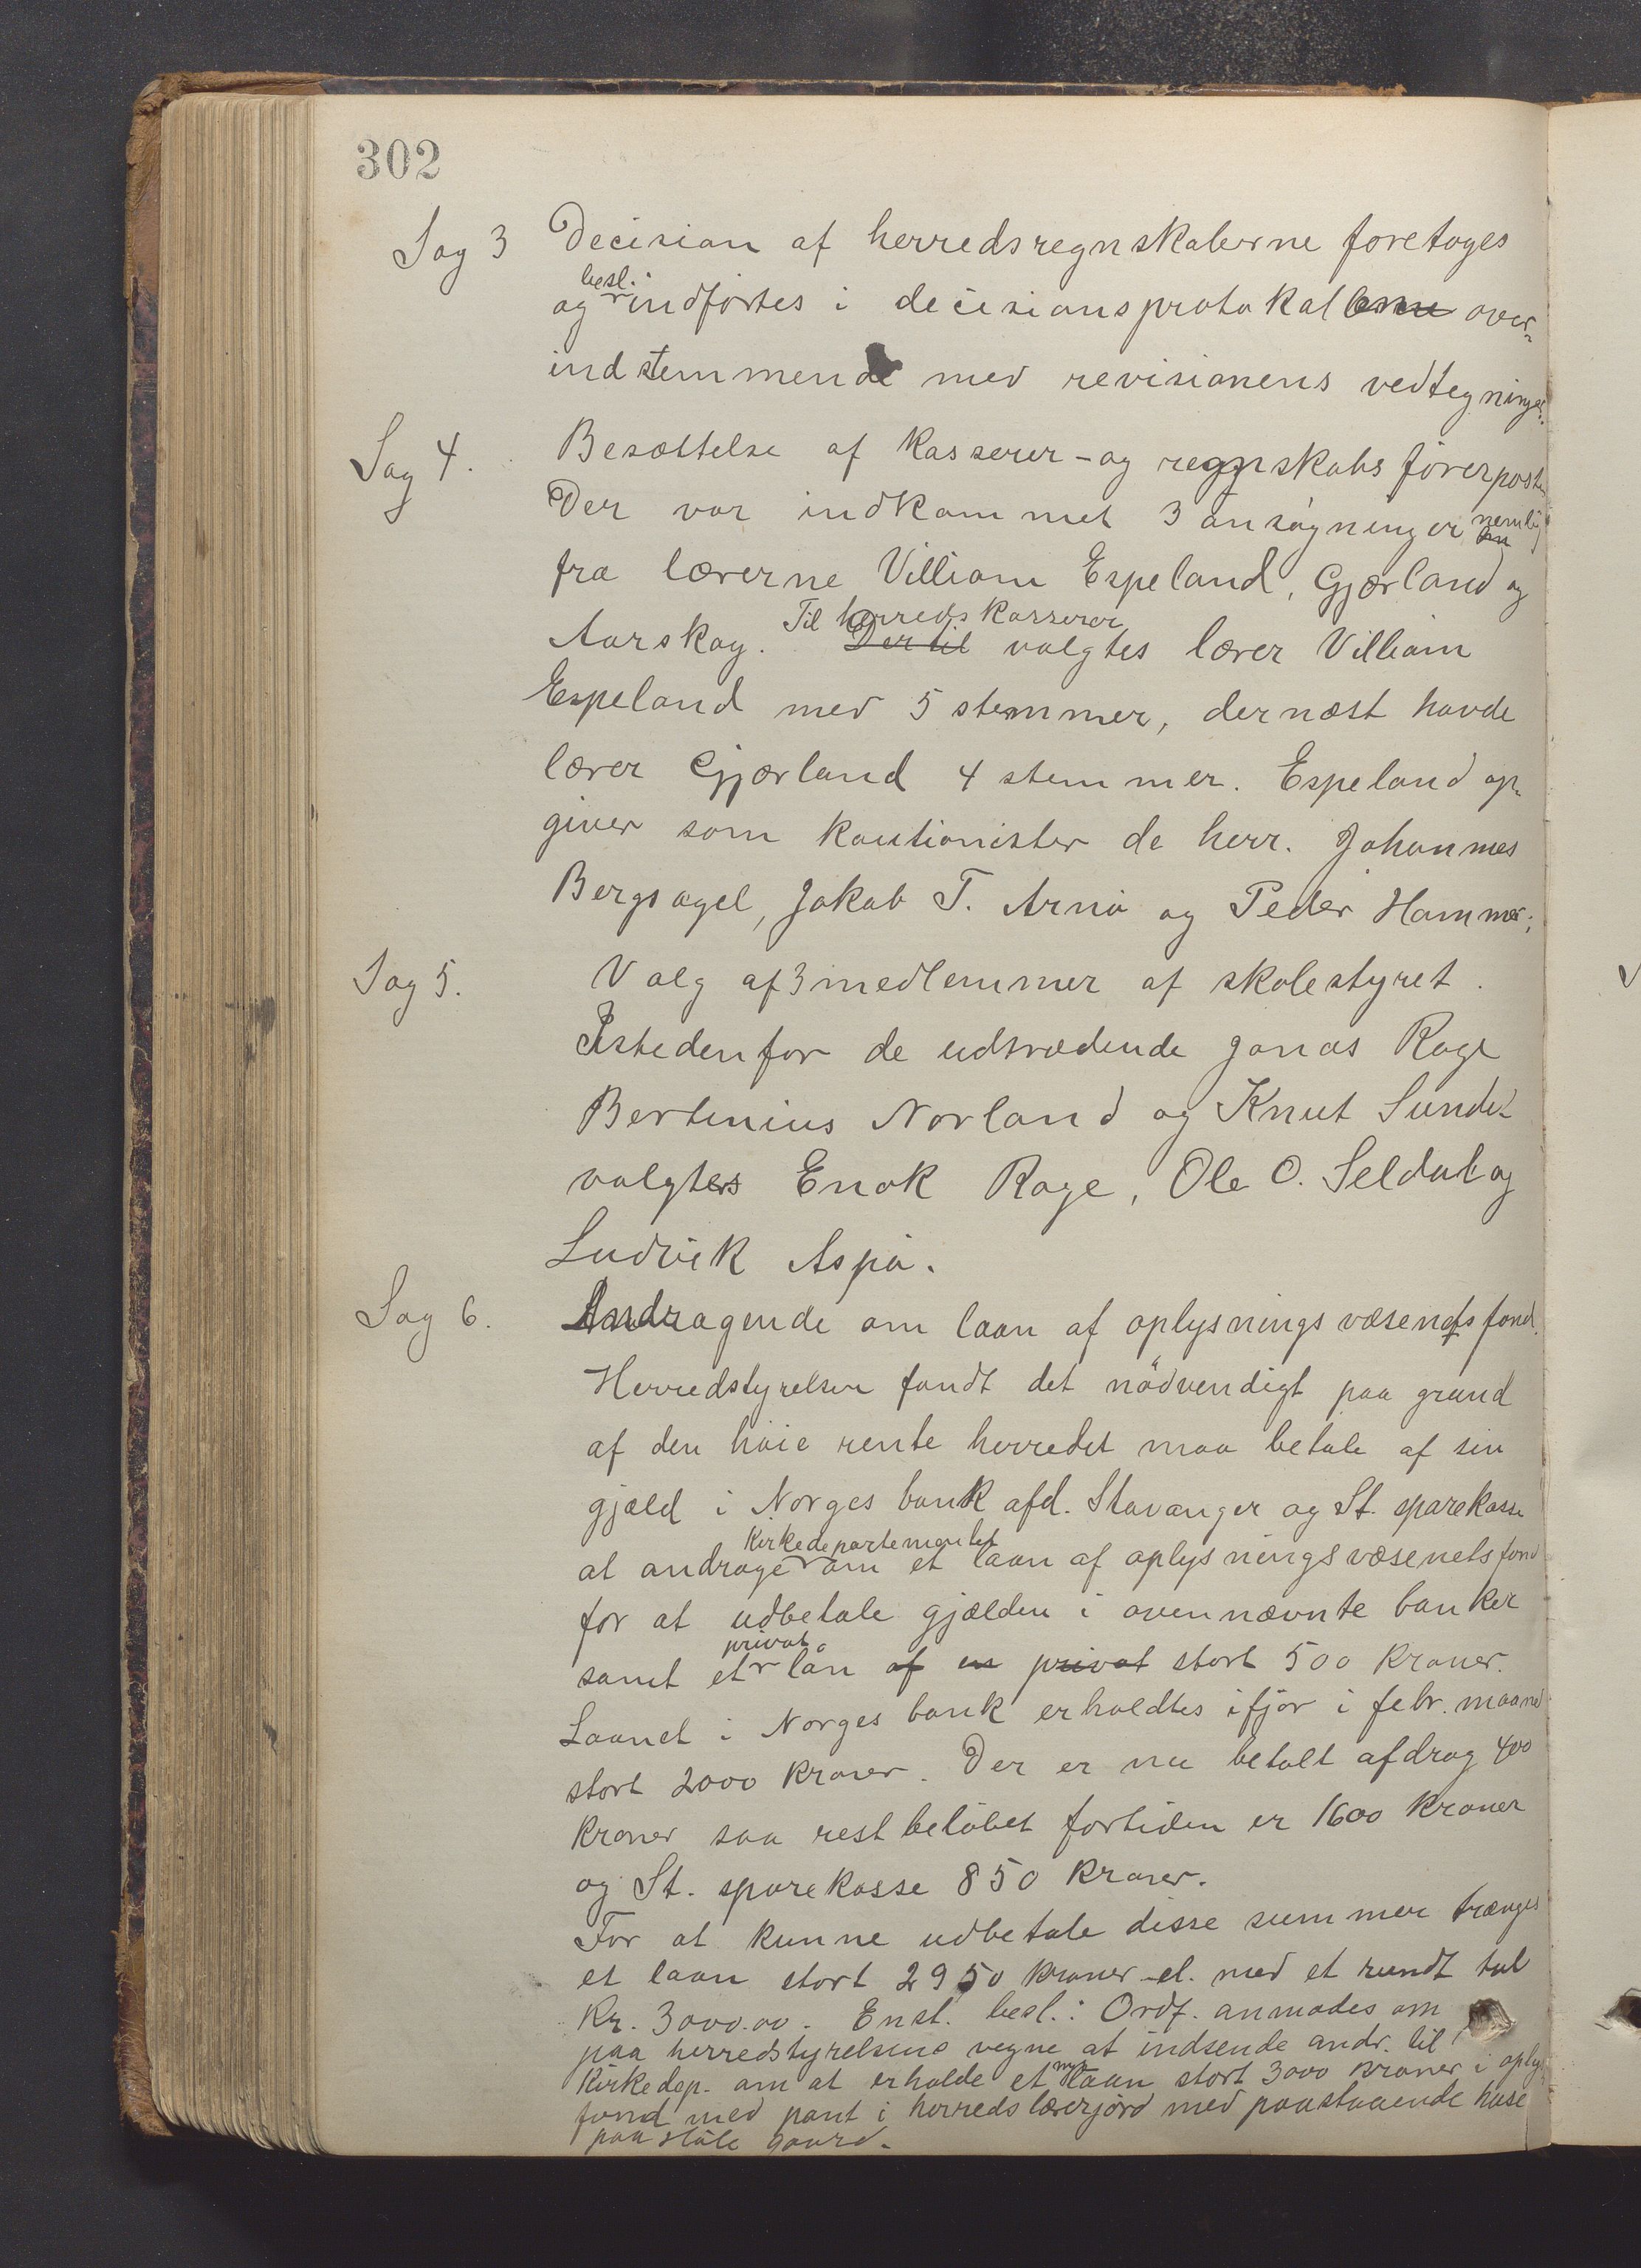 302
Sag 3 Decision af herredsregnskaberne foretoges
og besl. indførtes i decisionsprotokollerne over-
indstemmende med revisionens vedtegninger.
Sag 4. Besættelse af Kasserer - og regnskabsförerposten
Der var indkommet 3 ansøgninger nemlig
fra lærerne Villiam Espeland, Gjærland og
Aarskog. Til herredskasserer Dertil valgtes lærer Villiam
Espeland med 5 stemmer, dernæst havde
lærer Gjærland 4 stemmer. Espeland op-
giver som Kautionister de herr. Johannes
Bergsagel, Jakob T. Arnø og Peder Hammer;
Sag 5. Valg af 3 medlemmer af skolestyret.
Istedenfor de udtrædende Jonas Røge
Bertinius Norland og Knut Sunde
valgtes Enok Røge, Ole O. Seldal og
Ludvik Aspø.
Sag 6. Andragende om laan af oplysningsvæsenets fond.
Herredstyrelsen fandt det nødvendigt paa grund
af den høie rente herredet maa betale af sin
gjæld i Norges bank afd. Stavanger og St. sparekasse
at andrage Kirkedepartementet om et laan af oplysningsvæsenets fond
for at udbetale gjælden i ovennævnte banker
samt et privat lån af en privat stort 500 Kroner.
Laanet i Norges bank erholdtes ifjor i febr. maaned
stort 2000 Kroner. Der er nu betalt afdrag 400
Kroner saa restbeløbet fortiden er 1600 Kroner
og St. sparekasse 850 Kroner.
For at kunne udbetale disse summer trænges
et laan stort 2950 Kroner el. med et rundt tal
Kr. 3000.00. Enst. besl.: Ordf. anmodes om
paa herredstyrelsens vegne at indsende andr. til
Kirkedep. om at erholde et nyt laan stort 3000 Kroner i oply
fond med pant i herreds lærerjord med paastaaende huse
paa gaard.